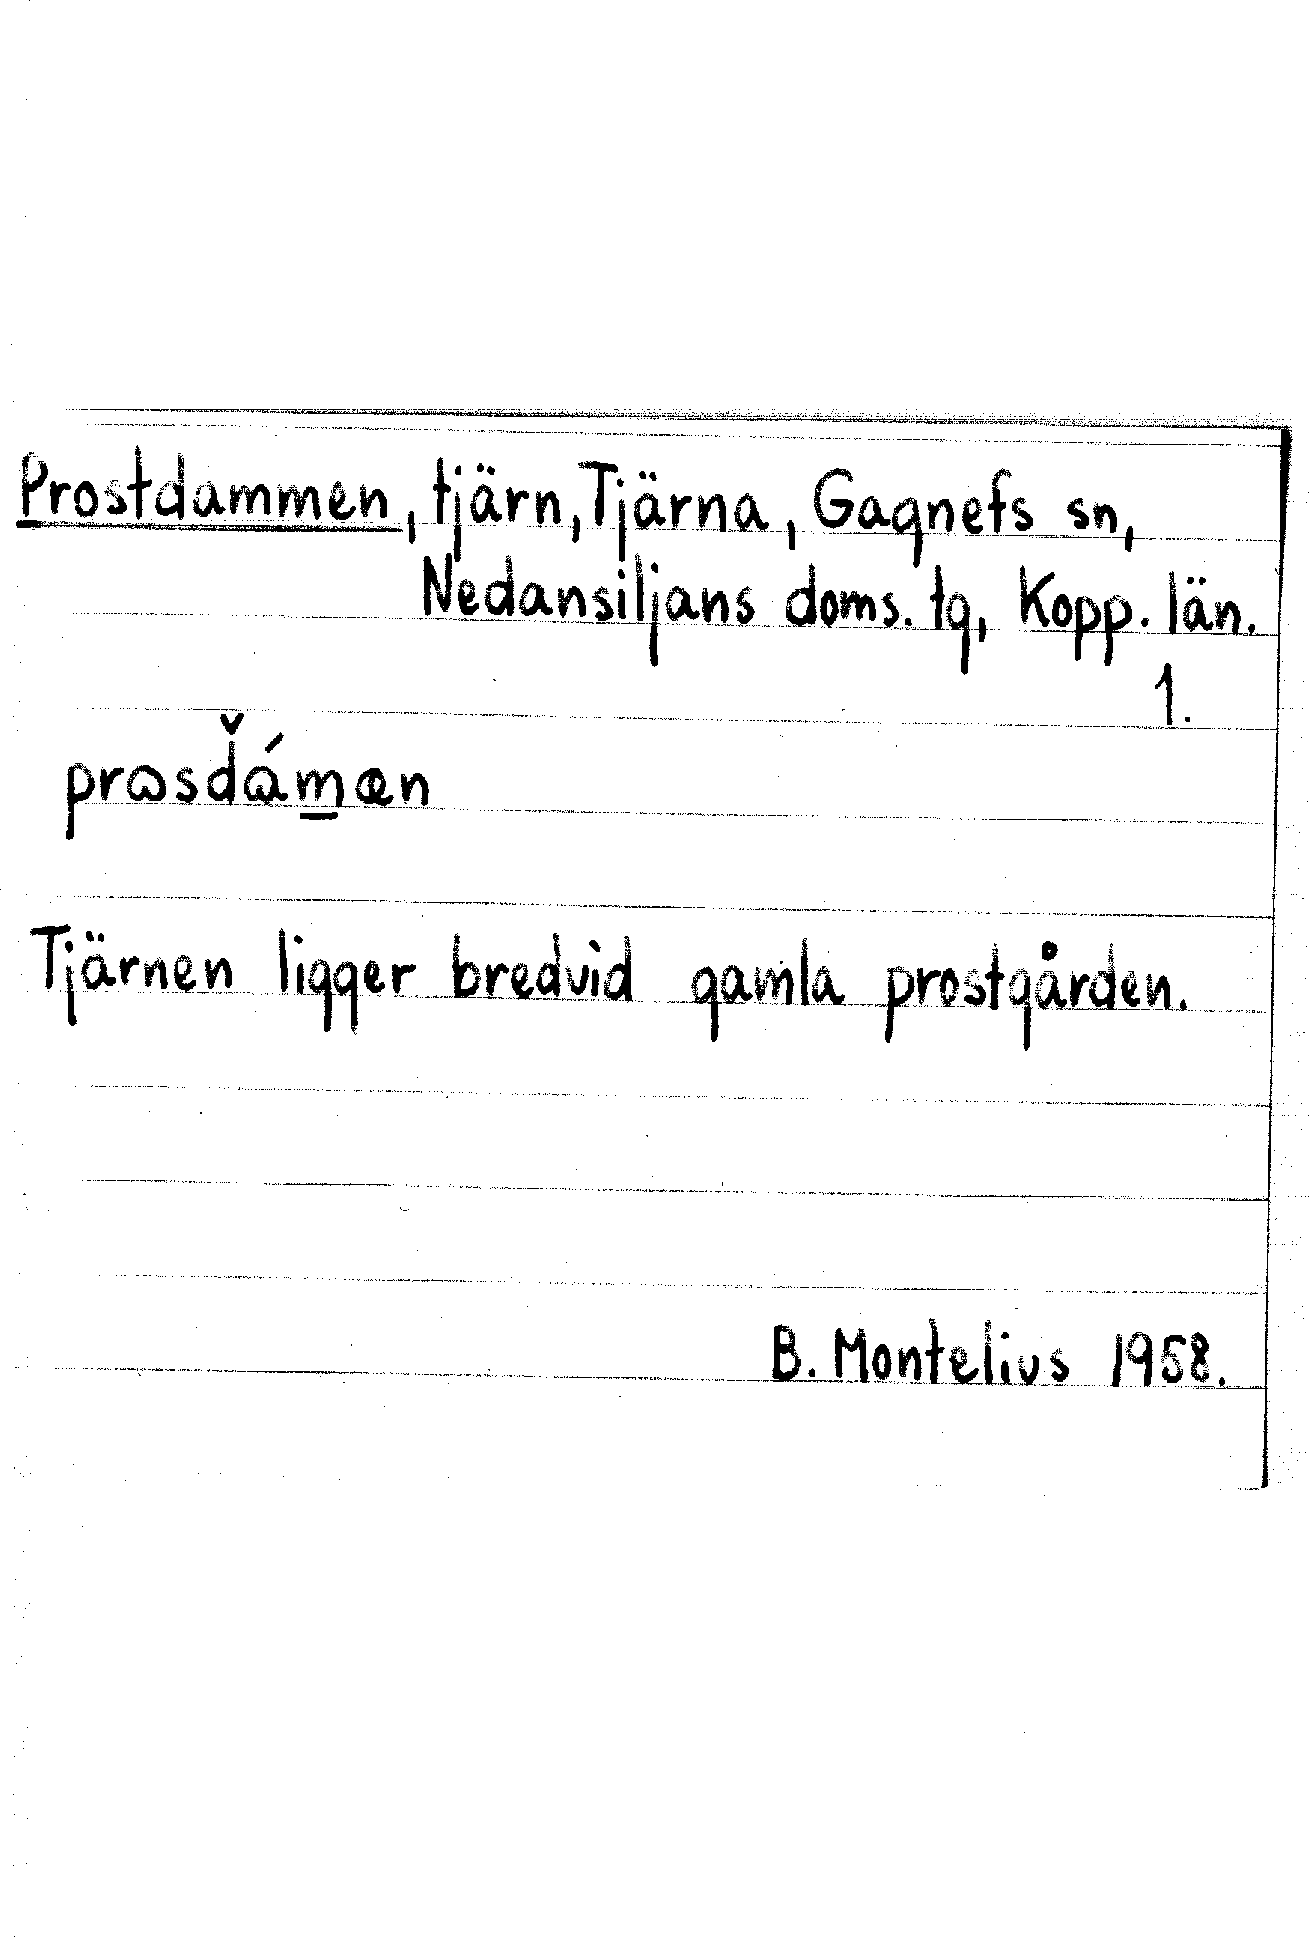 Prostdammen, tjärn, Tjärna, Gagnefs sn,
Nedansiljans doms. tg, Kopp. län.
1.
Tjärnen ligger bredvid gamla prostgården.
B. Montelius 1958.